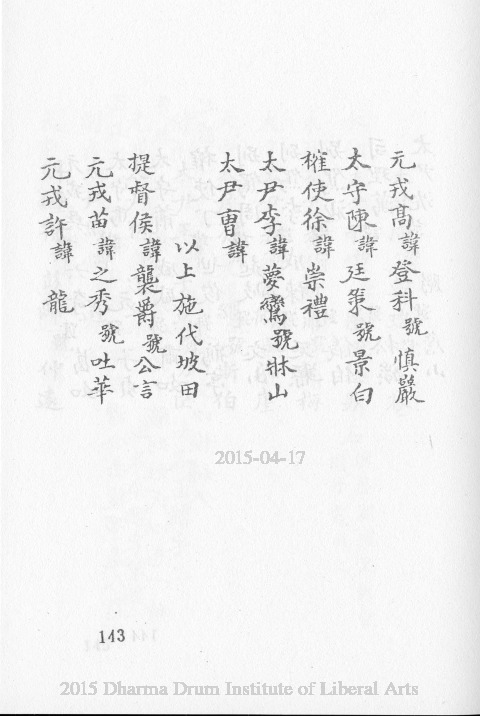 元戎高諱登科號慎嚴
太守陳諱廷策號景白
榷使徐諱崇禮
太尹李諱夢鸞號牀山
太尹曹諱
以上施代坡田
提督侯諱襲爵號公言
元戎苗諱之秀號吐華
元戎許諱龍
2015-04-17
143
2015 Dharma Drum Institute of Liberal Arts